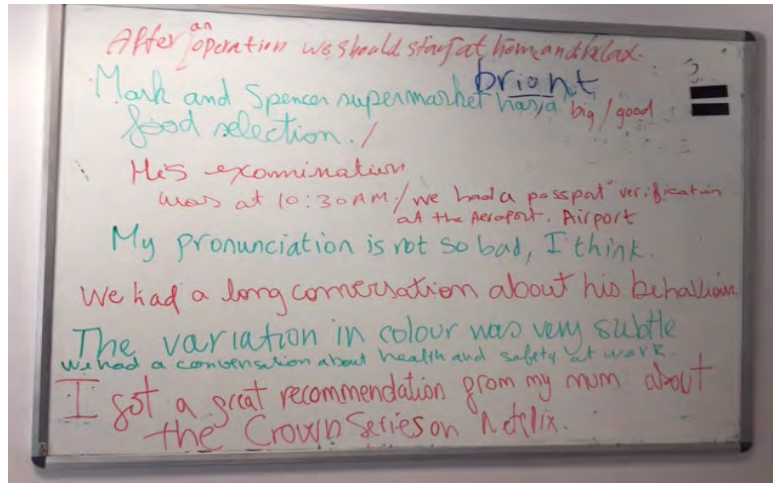 After an operation we should stay at home and relax.
bright
Mark and Spencer supermarket has a big/good
food selection./
His examination
was at 10:30AM/we had a passport verification
at the Aeroport. Airport
My pronunciation is not so bad, I think.
We had a long conversation about his behaviour
The variation in colour was very subtle
we had a conversation about health and safety at work.
I got a great recommendation from my mum about
the Crown Series on Netflix.